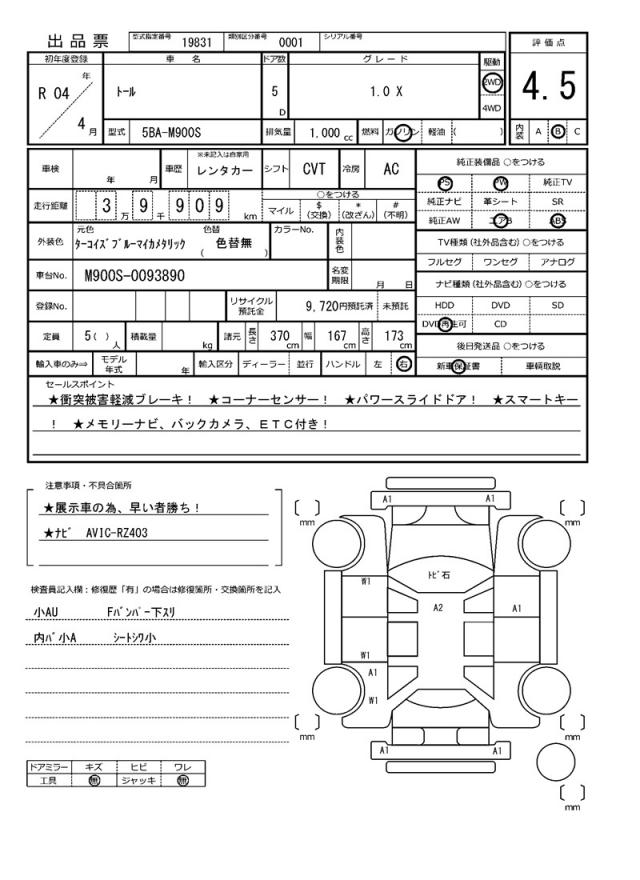 出品票 型式指定番号 19831 類別区分番号 0001 シリアル番号
評価点
4.5
初年度登録 車名 ドア数 グレード 駆動
R 04 年 4 月 トール 5 D 1.0 X 2WD
4WD
型式 5BA-M900S 排気量 1.000 cc 燃料 ガソリン 軽油 ( ) 内装 A B C
車検 年 月 車歴 ※未記入は自家用 レンタカー シフト CVT 冷房 AC
走行距離 3 万 9 千 9 0 9 km ○をつける
マイル $(交換) *(改ざん) #(不明)
外装色 元色 ターコイズブルーマイカメタリック 色替 ( 色替無 ) カラーNo. 内装色
車台No. M900S-0093890 名変期限 月 日
登録No. リサイクル預託金 9,720円預託済 未預託
定員 5( ) 人 積載量 kg 諸元 長さ 370 cm 幅 167 cm 高さ 173 cm
輸入車のみ⇒ モデル年式 年 輸入区分 ディーラー 並行 ハンドル 左 右
純正装備品 ○をつける
PS PW 純正TV
純正ナビ 革シート SR
純正AW エアB ABS
TV種類(社外品含む)○をつける
フルセグ ワンセグ アナログ
ナビ種類(社外品含む)○をつける
HDD DVD SD
DVD再生可 CD
後日発送品 ○をつける
新車保証書 車輌取説
セールスポイント
★衝突被害軽減ブレーキ! ★コーナーセンサー! ★パワースライドドア! ★スマートキー
! ★メモリーナビ、バックカメラ、ETC付き!
注意事項・不具合箇所
★展示車の為、早い者勝ち!
★ナビ AVIC-RZ403
検査員記入欄:修復歴「有」の場合は修復箇所・交換箇所を記入
小AU Fバンパー下スリ
内バ小A シートシワ小
ドアミラー キズ ヒビ ワレ
工具 無 ジャッキ 無
A1 A1
[ ] mm [ ] mm
トビ石
W1
A2 A1
W1
A1
W1
[ ] mm [ ] mm
A1 A1
[ ] mm